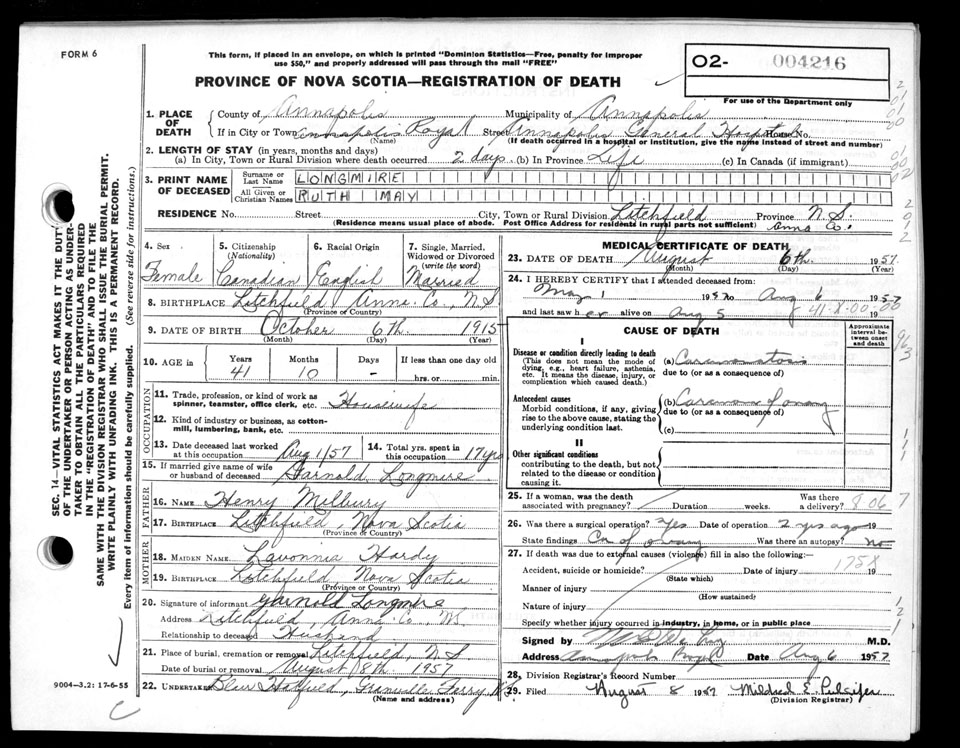 FORM 6
This form, if placed in an envelope, on which is printed "Dominion Statistics—Free, penalty for improper
use $50," and properly addressed will pass through the mail "FREE"
O2- 004216
For use of the Department only
PROVINCE OF NOVA SCOTIA—REGISTRATION OF DEATH
1. PLACE OF DEATH
County of Annapolis Municipality of Annapolis
If in City or Town Annapolis Royal Street Annapolis General Hospital House No.
(Name) (If death occurred in a hospital or institution, give the name instead of street and number)
2. LENGTH OF STAY (in years, months and days)
(a) In City, Town or Rural Division where death occurred 2 days (b) In Province Life (c) In Canada (if immigrant)
3. PRINT NAME OF DECEASED
Surname or Last Name LONGMIRE
All Given or Christian Names RUTH MAY
RESIDENCE No. Street City, Town or Rural Division Litchfield Province N.S.
(Residence means usual place of abode. Post Office Address for residents in rural parts not sufficient) Anna Co.
4. Sex 5. Citizenship (Nationality) 6. Racial Origin 7. Single, Married, Widowed or Divorced (write the word)
Female Canadian English Married
8. BIRTHPLACE Litchfield, Anna. Co., N.S
(Province or Country)
9. DATE OF BIRTH October 6th 1915
(Month) (Day) (Year)
10. AGE in Years Months Days If less than one day old
41 10 - hrs. or min.
OCCUPATION
11. Trade, profession, or kind of work as spinner, teamster, office clerk, etc. Housewife
12. Kind of industry or business, as cotton-mill, lumbering, bank, etc.
13. Date deceased last worked at this occupation Aug 1/57 14. Total yrs. spent in this occupation 17 yrs
15. If married give name of wife or husband of deceased Garnold Longmire
FATHER
16. NAME Henry Milbury
17. BIRTHPLACE Litchfield, Nova Scotia
(Province or Country)
MOTHER
18. MAIDEN NAME Lavonnia Hardy
19. BIRTHPLACE Litchfield, Nova Scotia
(Province or Country)
20. Signature of informant Garnold Longmire
Address Litchfield, Anna. Co., N.S.
Relationship to deceased Husband
21. Place of burial, cremation or removal Litchfield, N.S.
Date of burial or removal August 8th, 1957
22. Undertaker Granville Ferry N.S.
(Name and address)
MEDICAL CERTIFICATE OF DEATH
23. DATE OF DEATH August 6th. 1957
(Month) (Day) (Year)
24. I HEREBY CERTIFY that I attended deceased from:
May 1 to Aug 6 1957
and last saw her alive on Aug 5
CAUSE OF DEATH
Approximate interval between onset and death
I
Disease or condition directly leading to death
(This does not mean the mode of dying, e.g., heart failure, asthenia, etc. It means the disease, injury, or complication which caused death.)
(a) Carcinomatosis
due to (or as a consequence of)
Antecedent causes
Morbid conditions, if any, giving rise to the above cause, stating the underlying condition last.
(b) Carcinoma of ovary
due to (or as a consequence of)
(c)
II
Other significant conditions
contributing to the death, but not related to the disease or condition causing it.
25. If a woman, was the death associated with pregnancy? Duration weeks. Was there a delivery?
8 06 7
26. Was there a surgical operation? Yes Date of operation 2 yrs ago 19
State findings Ca of ovary Was there an autopsy? no
27. If death was due to external causes (violence) fill in also the following:—
175X
Accident, suicide or homicide? Date of injury 19
(State which)
Manner of injury
(How sustained)
Nature of injury
Specify whether injury occurred in industry, in home, or in public place
Signed by M.D.
Address Annapolis Royal Date Aug 6 1957
28. Division Registrar's Record Number
29. Filed August 8 1957 Mildred E. Pulsifer
(Division Registrar)
SEC. 14—VITAL STATISTICS ACT MAKES IT THE DUTY
OF THE UNDERTAKER OR PERSON ACTING AS UNDER-
TAKER TO OBTAIN ALL THE PARTICULARS REQUIRED
IN THE "REGISTRATION OF DEATH" AND TO FILE THE
SAME WITH THE DIVISION REGISTRAR WHO SHALL ISSUE THE BURIAL PERMIT.
WRITE PLAINLY WITH UNFADING INK. THIS IS A PERMANENT RECORD.
Every item of information should be carefully supplied. (See reverse side for instructions.)
9004-3.2: 17-6-55